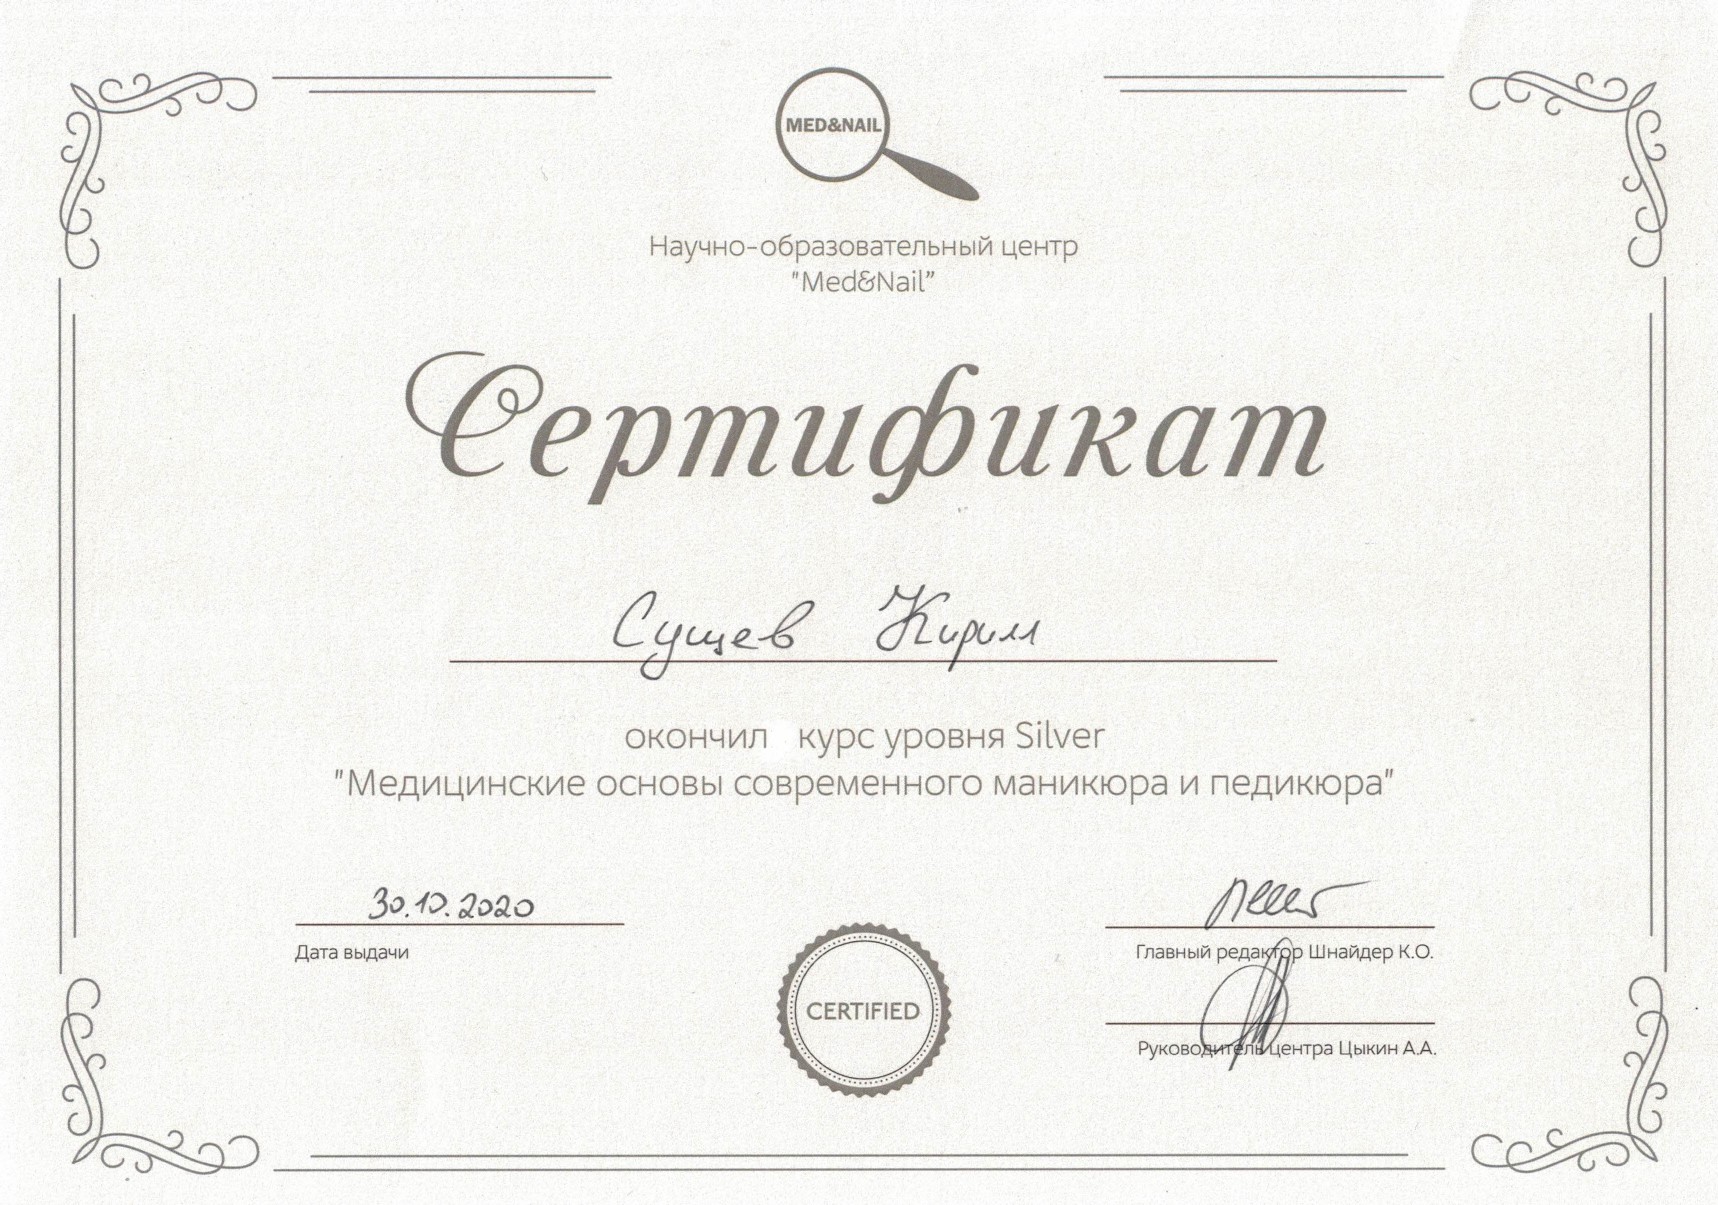 MED&NAIL
Научно-образовательный центр
"Med&Nail”
Сертификат
Сущев Кирилл
окончил курс уровня Silver
"Медицинские основы современного маникюра и педикюра"
30.10.2020
Дата выдачи
CERTIFIED
Главный редактор Шнайдер К.О.
Руководитель центра Цыкин А.А.